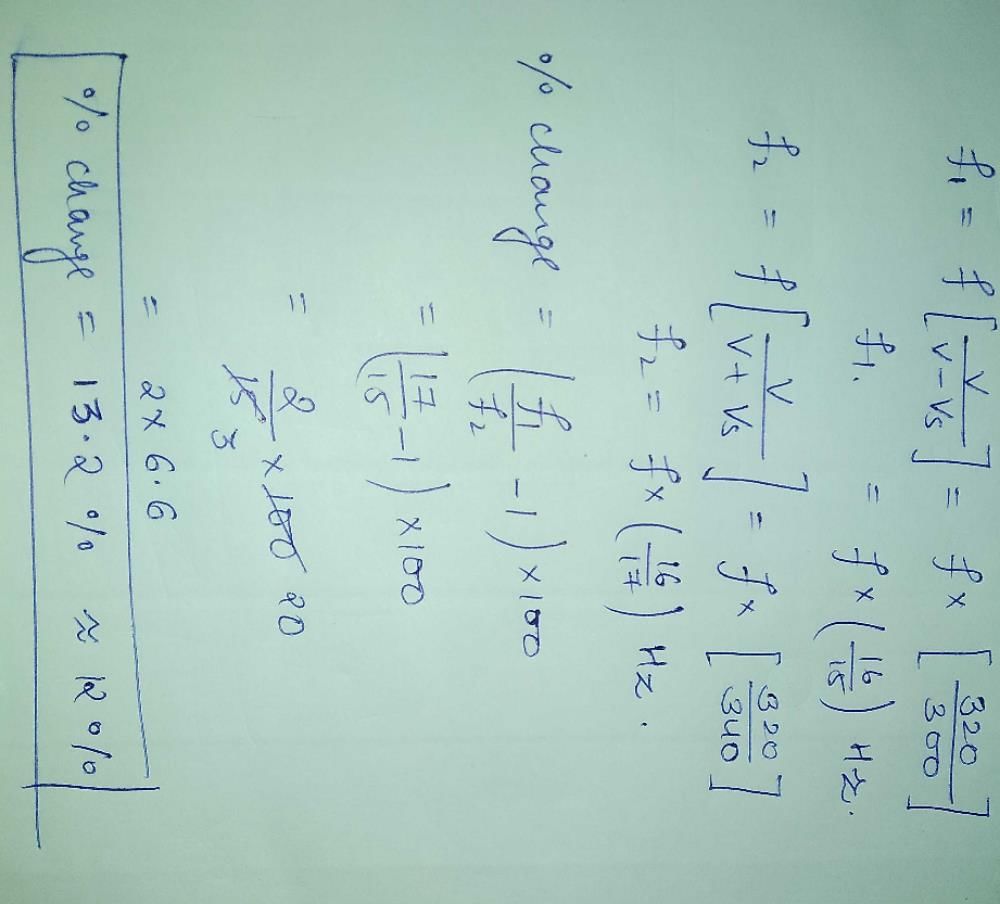 f₁ = f [ v / (v - vs) ] = f × [ 320 / 300 ]
f₁. = f × ( 16 / 15 ) Hz.
f₂ = f [ v / (v + vs) ] = f × [ 320 / 340 ]
f₂ = f × ( 16 / 17 ) Hz.
% change = ( f₁ / f₂ - 1 ) × 100
= ( 17 / 15 - 1 ) × 100
= 2 / 15 3 × 100 20
= 2 × 6.6
% change = 13.2 % ≈ 12 %